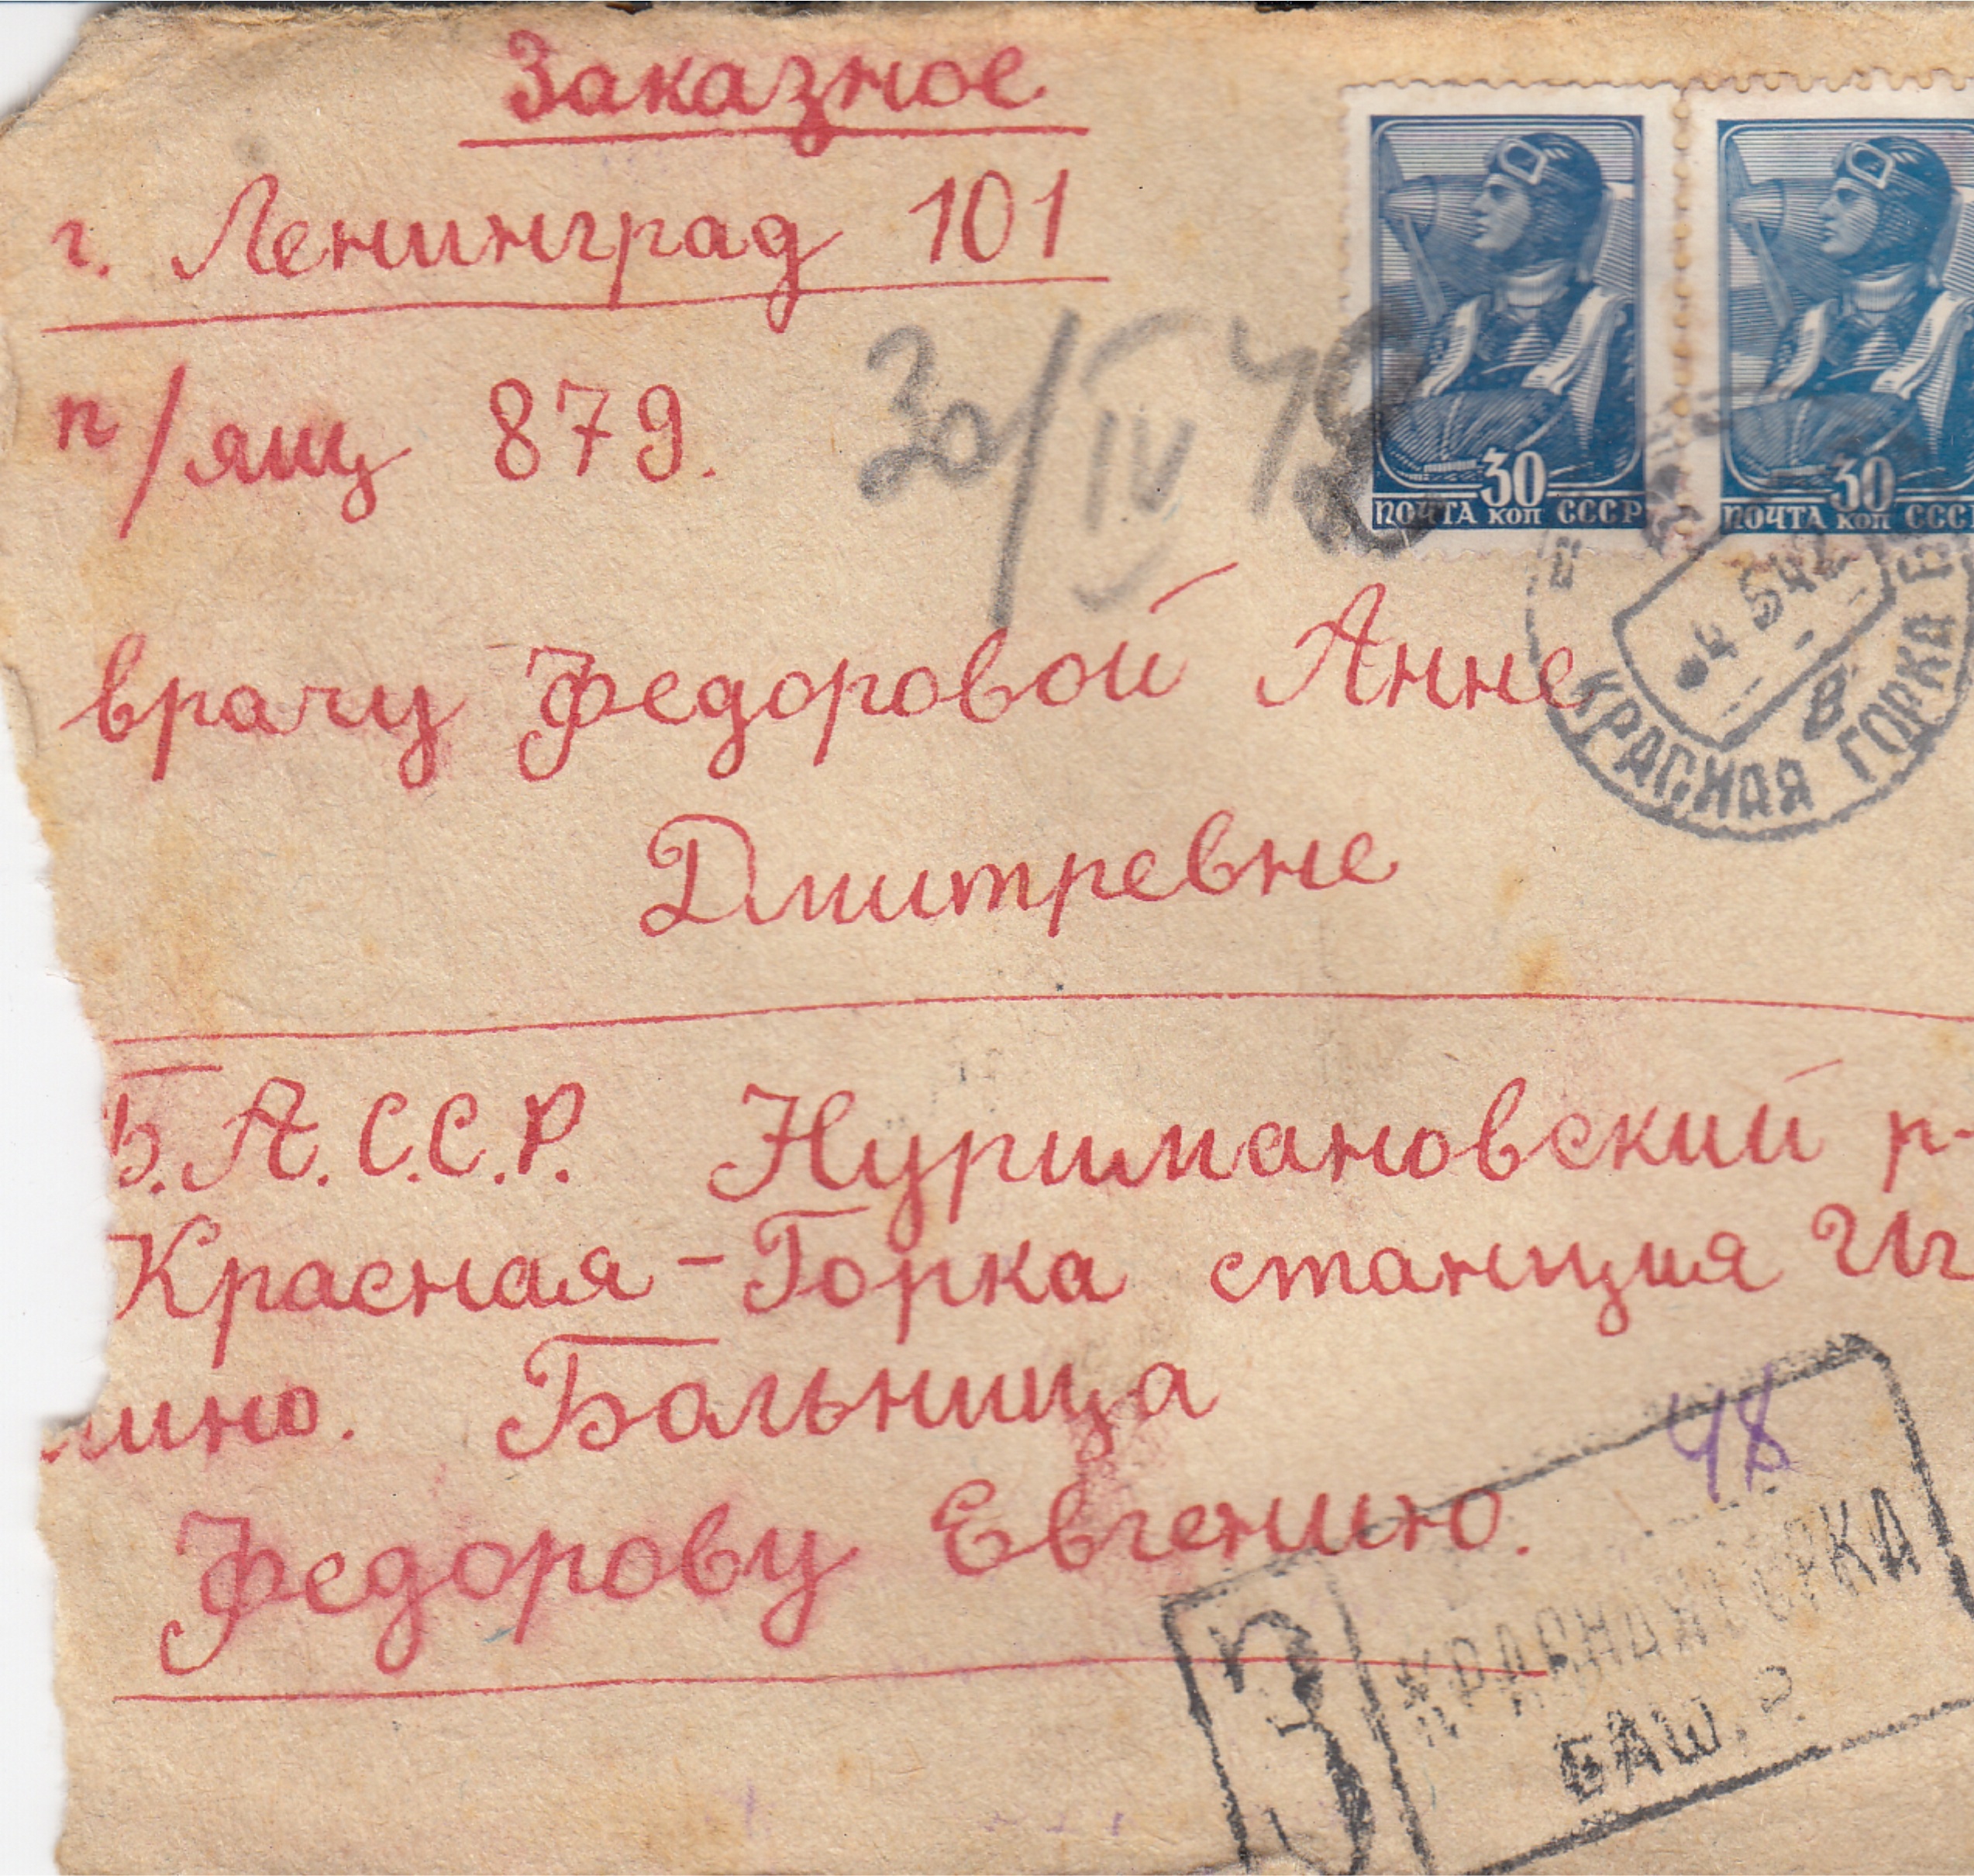 Заказное
г. Ленинград 101
п/ящ 879.
30/IV 42
врачу Федоровой Анне
Дмитревне
30
ПОЧТА КОП СССР
30
ПОЧТА КОП СССР
4 5 42
В
КРАСНАЯ ГОРКА
Б.А.С.С.Р. Нуримановский р-
Красная-Горка станция Иг
лино. Больница
Федорову Евгению.
48
З
КРАСНАЯ ГОРКА
БАШ.